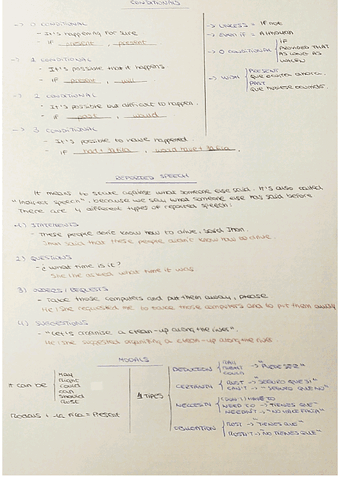 CONDITIONALS
→ 0 CONDITIONAL
- It's happening for sure
- IF present, present
→ 1 CONDITIONAL
- It's possible that it happens
- IF present, will
→ 2 CONDITIONAL
- It's possible but difficult to happen.
- IF past, would
→ 3 CONDITIONAL
- It's possible to never happened
- IF had +, would have +
→ UNLESS = IF NOT
→ EVEN IF = AUNQUE
→ 0 CONDITIONAL
IF
PROVIDED THAT
AS LONG AS
WHEN
→ WISH
PRESENT
PAST
REPORTED SPEECH
It means to someone what someone else said. It's also called
"indirect speech", because we say what someone else has said before
There are 4 different types of reported speech.
1) STATEMENTS
- These people don't know how to drive, said Iman
Iman said that these people didn't know how to drive.
2) QUESTIONS
- What time is it?
She/he asked what time it was
3) ORDERS/REQUESTS
- those computers and put them away, please
He/she requested me to those computers and to put them away
4) SUGGESTIONS
- "Let's organize a clean-up along the river".
He/she suggested organizing a clean-up along the river.
MODALS
IT CAN BE
MAY
MIGHT
COULD
CAN
SHOULD
MUST
Modals + = Present
4 TYPES
DEDUCTION
MAY
MIGHT
COULD
→ "PUEDE SER"
CERTAINTY
MUST → "SEGURO QUE SI"
CAN'T → "SEGURO QUE NO"
NECESSITY
HAVE TO
NEED TO → "TIENES QUE"
NEEDN'T → "NO HACE FALTA"
OBLIGATION
MUST → "TIENES QUE"
MUSTN'T → "NO TIENES QUE"